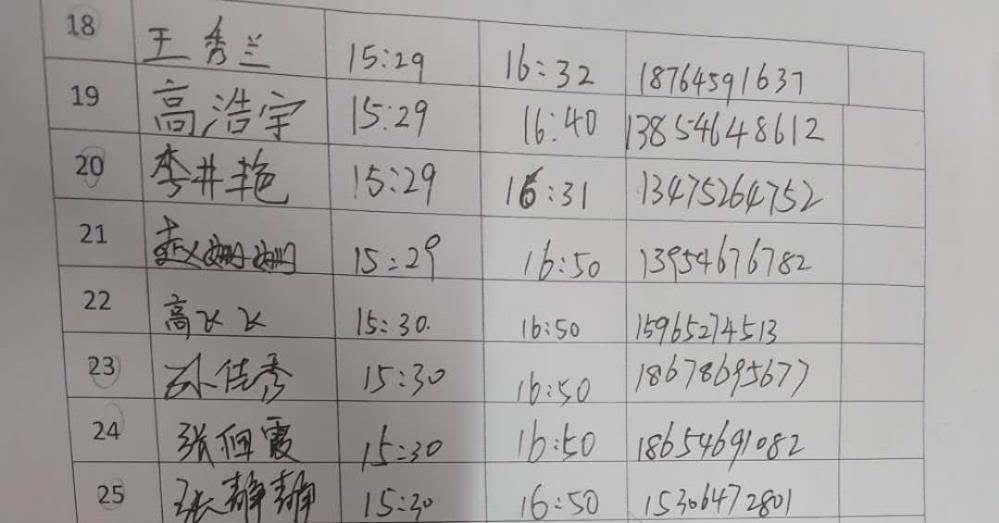 18 王秀兰 15:29 16:32 18764591637
19 高浩宇 15:29 16:40 13854648612
20 李井艳 15:29 16:31 13475264752
21 赵姗姗 15:29 16:50 13954676782
22 高 15:30. 16:50 15965274513
23 孙佳秀 15:30 16:50 18678695677
24 张霞 15:30 16:50 18654691082
25 张静静 15:30 16:50 15306472801